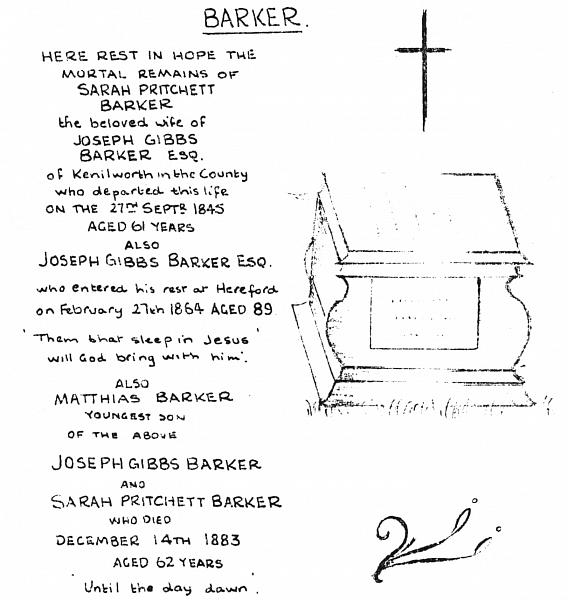 BARKER.
HERE REST IN HOPE THE
MORTAL REMAINS OF
SARAH PRITCHETT
BARKER
the beloved wife of
JOSEPH GIBBS
BARKER ESQ.
of Kenilworth in the County
who departed this life
ON THE 27TH SEPTR 1845
AGED 61 YEARS
ALSO
JOSEPH GIBBS BARKER ESQ.
who entered his rest at Hereford
on February 27th 1864 AGED 89
'Them that sleep in Jesus'
will God bring with him'.
ALSO
MATTHIAS BARKER
YOUNGEST SON
OF THE ABOVE
JOSEPH GIBBS BARKER
AND
SARAH PRITCHETT BARKER
WHO DIED
DECEMBER 14TH 1883
AGED 62 YEARS
'Until the day dawn'.